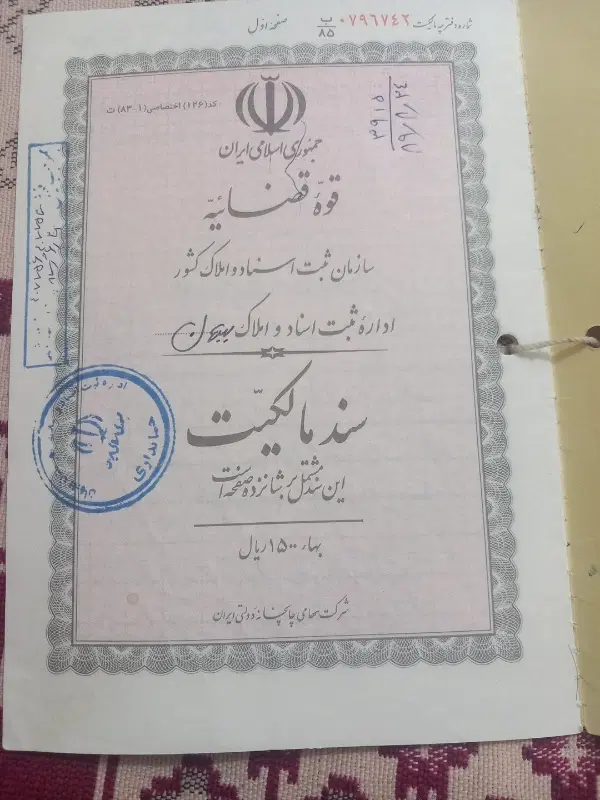 شماره دفترچه مالکیت ۰۷۹۶۷۴۲ ب/۸۵ صفحه اول
کد (۱۲۶) اختصاصی (۱-۸۳) ت
۳۹۱۵
جمهوری اسلامی ایران
قوه قضائیه
سازمان ثبت اسناد و املاک کشور
اداره ثبت اسناد و املاک
سند مالکیت
این سند مشتمل بر شانزده صفحه است
بهاء ۱۵۰۰ ریال
شرکت سهامی چاپخانه دولتی ایران
اداره ثبت
حسابداری